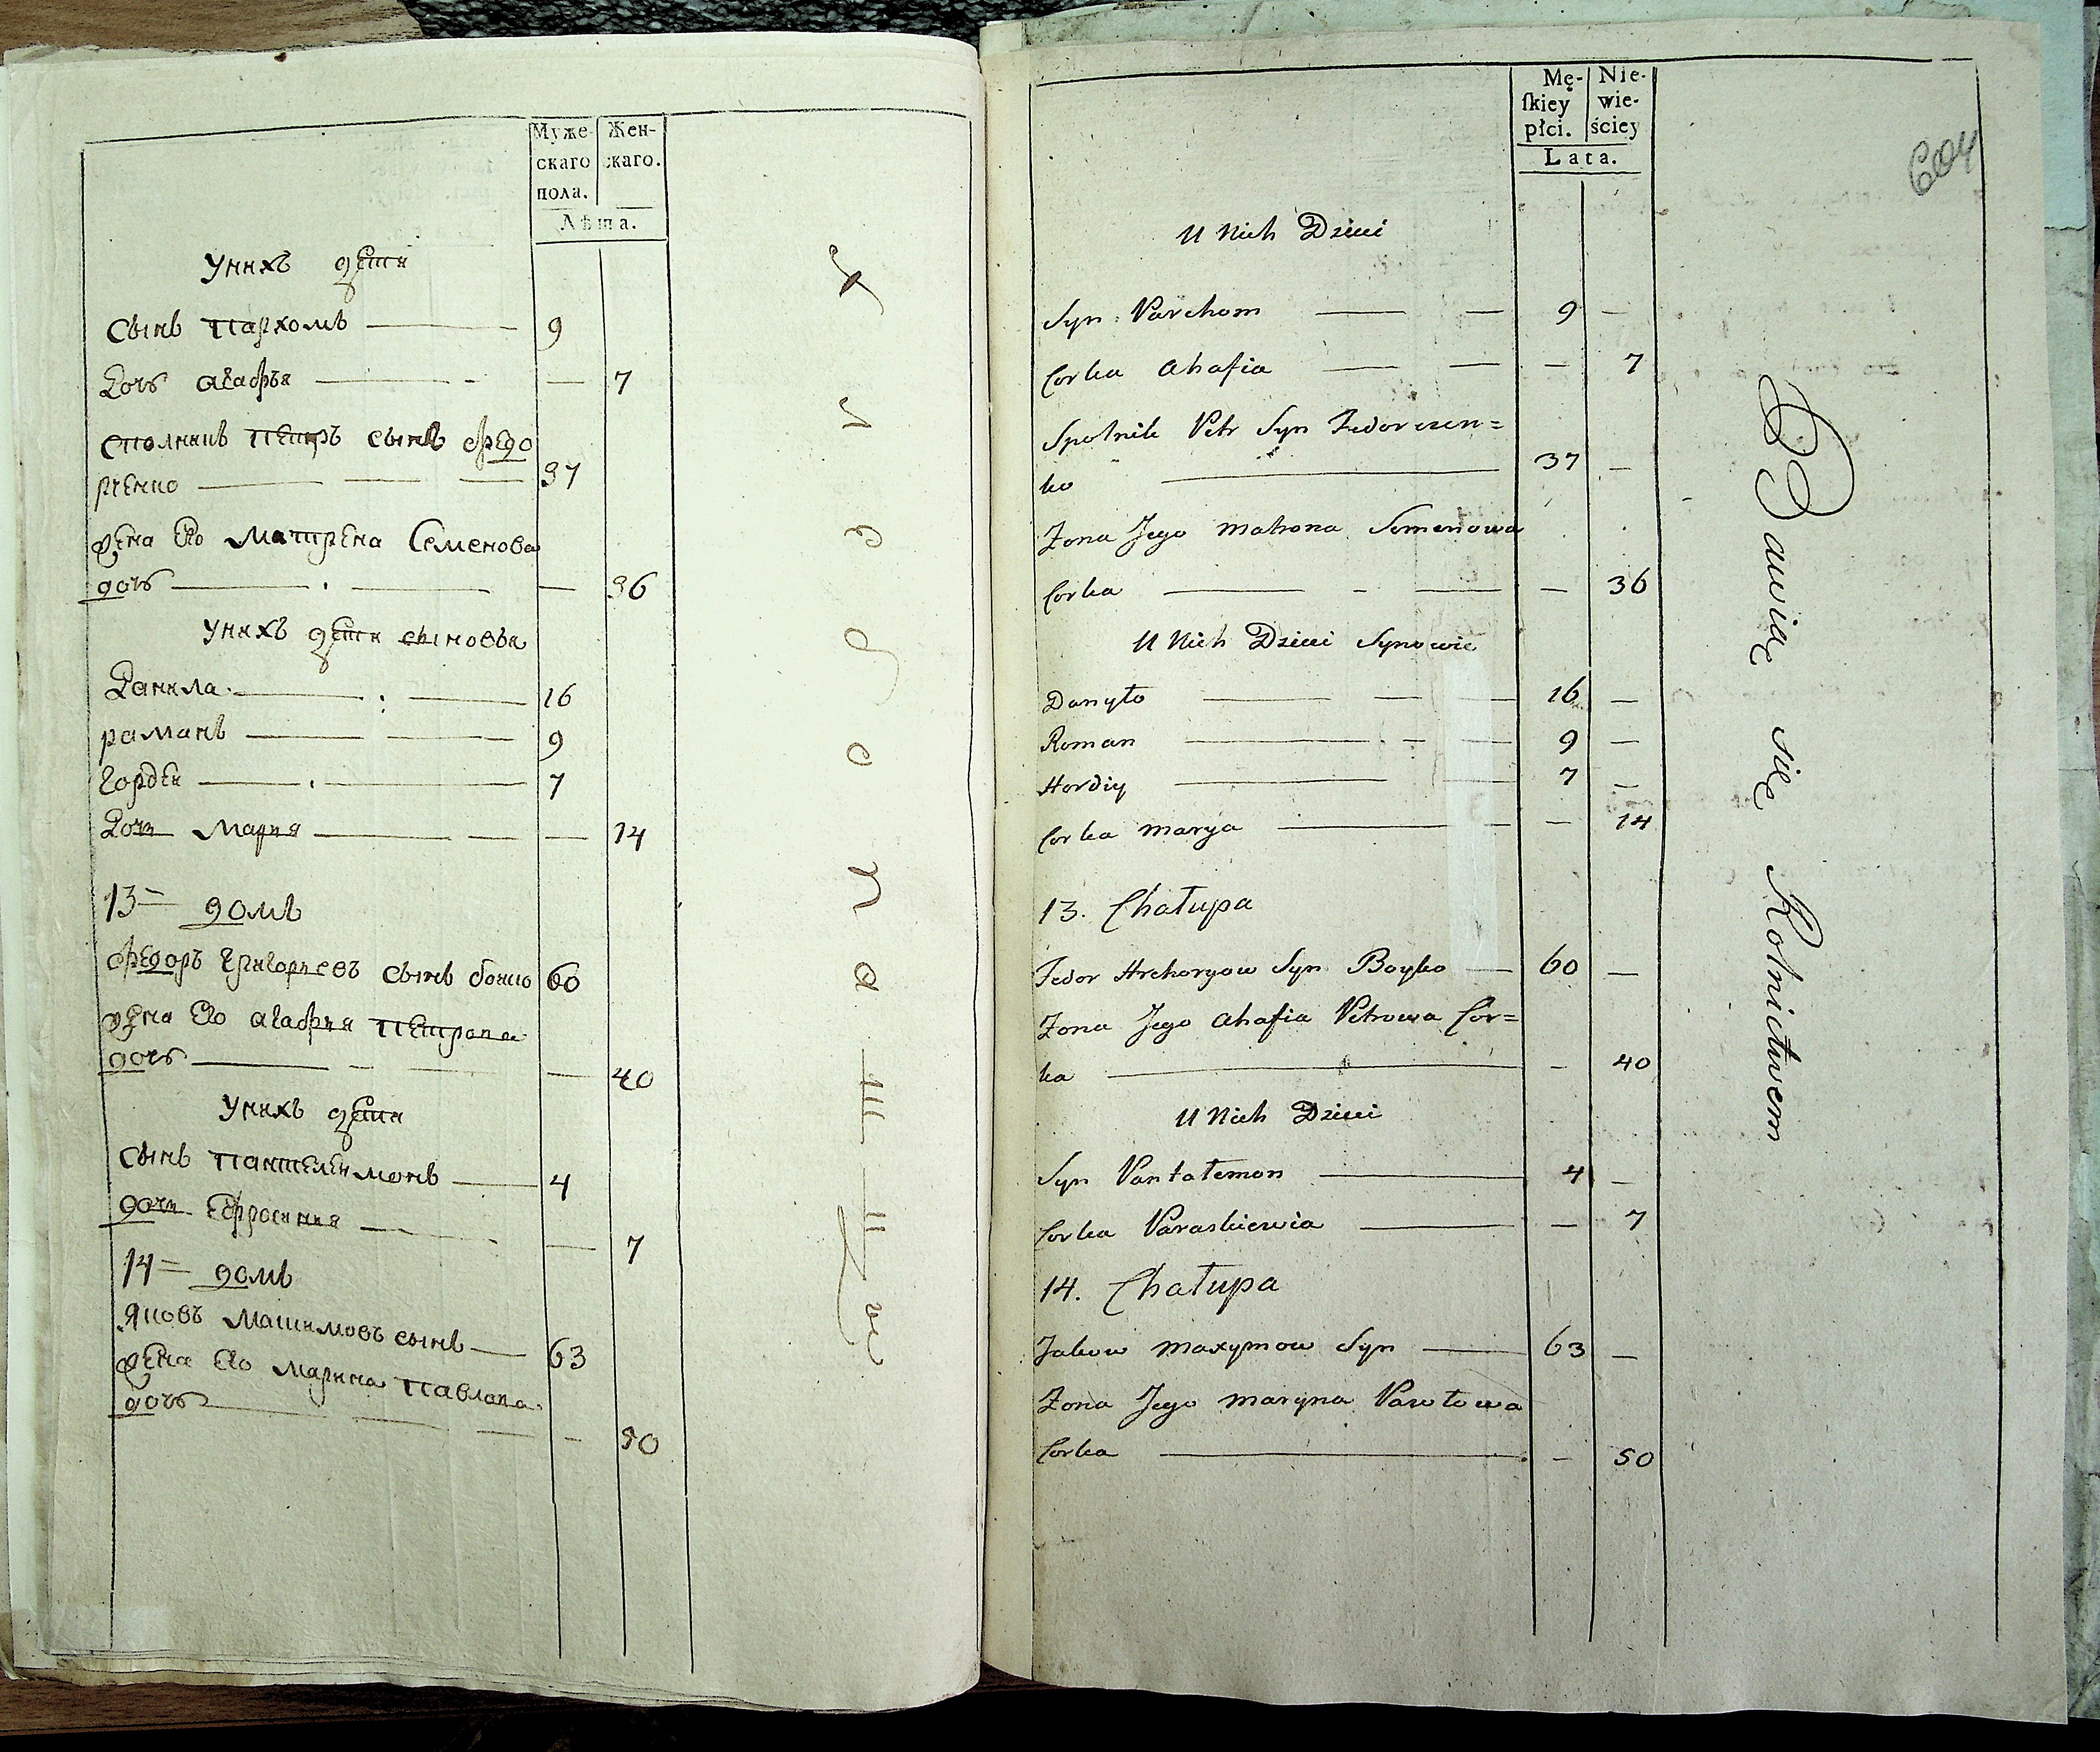 Муже-
скаго
пола.
Жен-
скаго.
Лѣта.
Унихъ дети
Сынъ Пархомъ — 9
Дочь агафья — — 7
Сполникъ Петръ сынъ Федо
рченко — 37
жена Его Матрена Семенова
дочь — — 36
Унихъ дети сыновья
Данила — 16
раманъ — 9
Гордей — 7
Дочи Мария — — 14
13= домъ
Федоръ Григорьевъ сынъ бойко 60
жена Его агафия Петрова
дочь — — 40
Унихъ дети
Сынъ Пантелеймонъ — 4
дочи Ефросиния — — 7
14= домъ
Яковъ Макимовъ сынъ — 63
жена Его Марина Павлова
дочь — — 50
Mę-
ſkiey
płci.
Nie-
wie-
ściey
Lata.
604
U Nich Dzieci
Syn Parchom — 9 —
Corka Ahafia — — 7
Spolnik Petr Syn Fedorczen=
ko — 37 —
Zona Jego Matrona Semenowa
Corka — — 36
U Nich Dzieci Synowie
Danyło — 16 —
Roman — 9 —
Hordiy — 7 —
Corka Marya — — 14
13. Chałupa
Fedor Hrehoryow Syn Boyko — 60 —
Zona Jego Ahafia Petrowa Cor=
ka — — 40
U Nich Dzieci
Syn Pantałemon — 4 —
Corka Paraskiewia — — 7
14. Chałupa
Jakow Maxymow Syn — 63 —
Zona Jego Maryna Pawłowa
Corka — — 50
Bawiąc się Rolnictwem